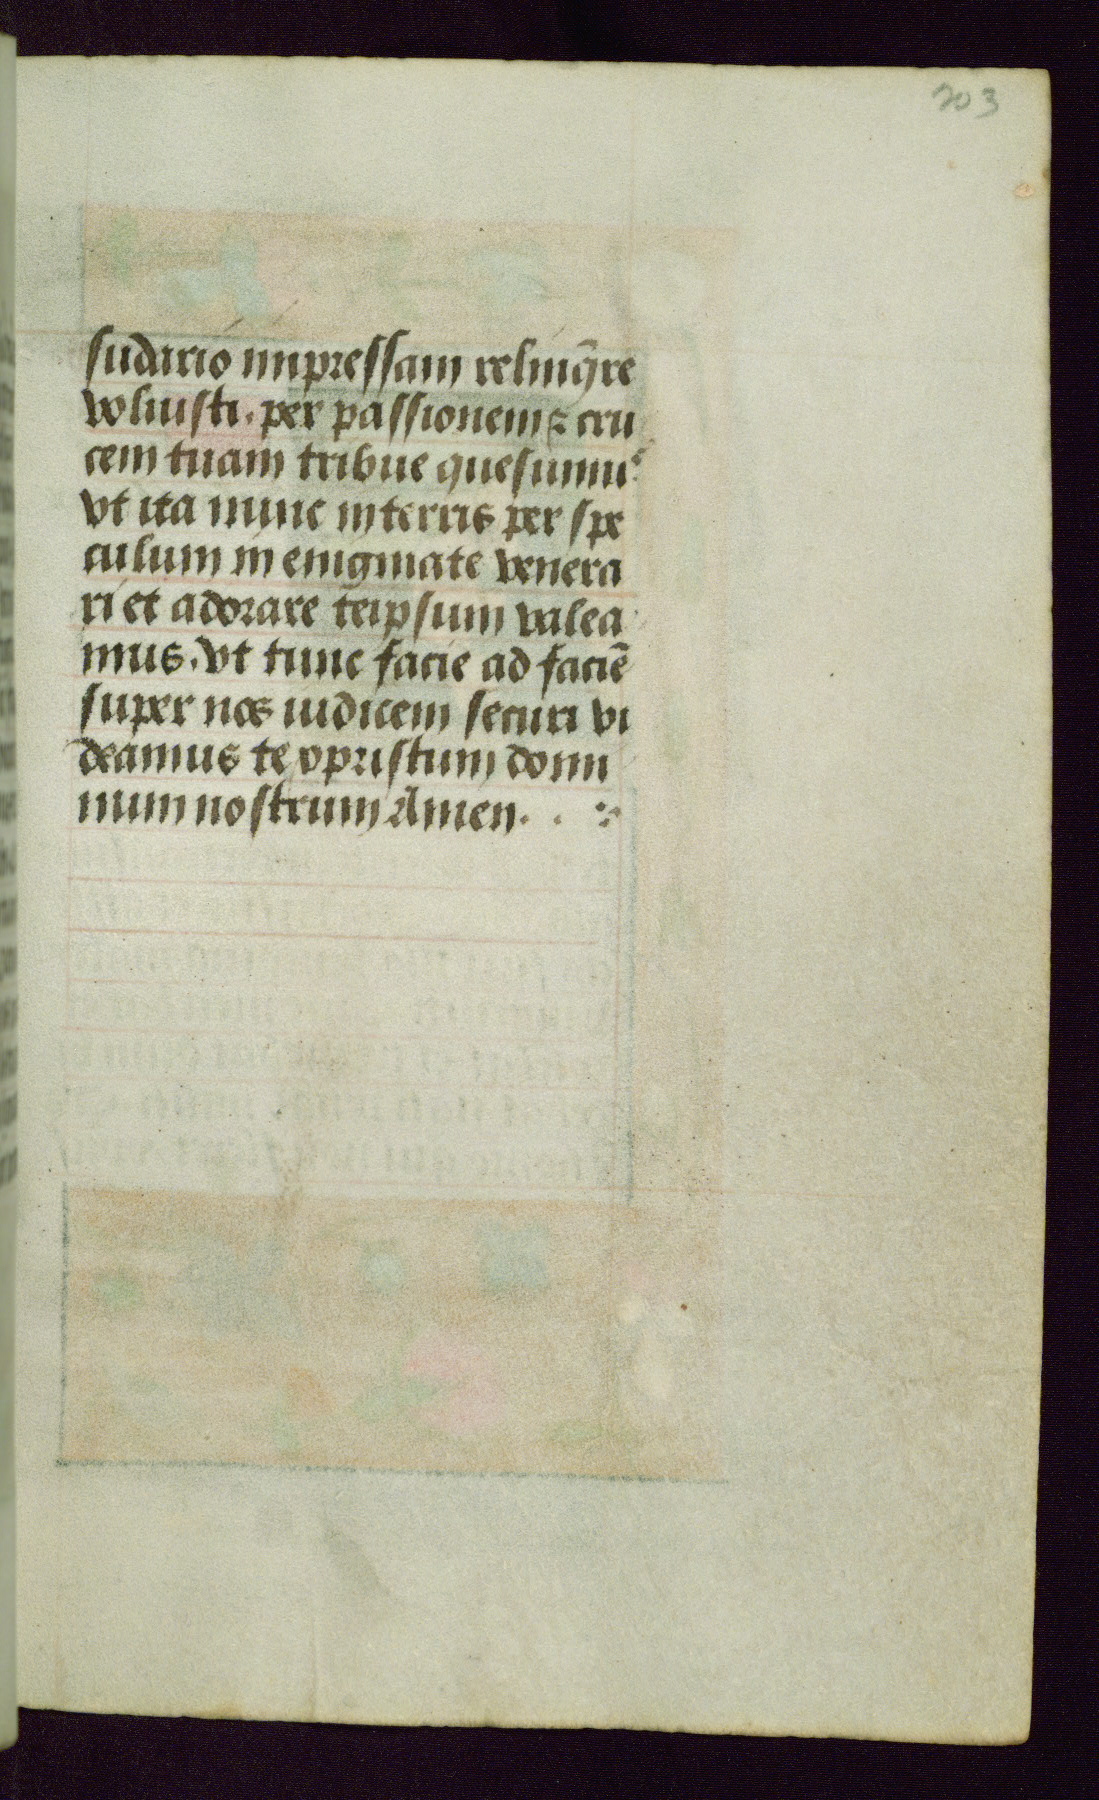 203
sudario impressam relinq̄re
voluisti. per passionem ⁊ cru
cem tuam tribue quesumuꝰ
vt ita nunc in terris per spe
culum in enigmate venera
ri et adorare teipsum valea
mus. vt tunc facie ad faciē
super nos iudicem securi vi
deamus te xpristum domi
num nostrum Amen.